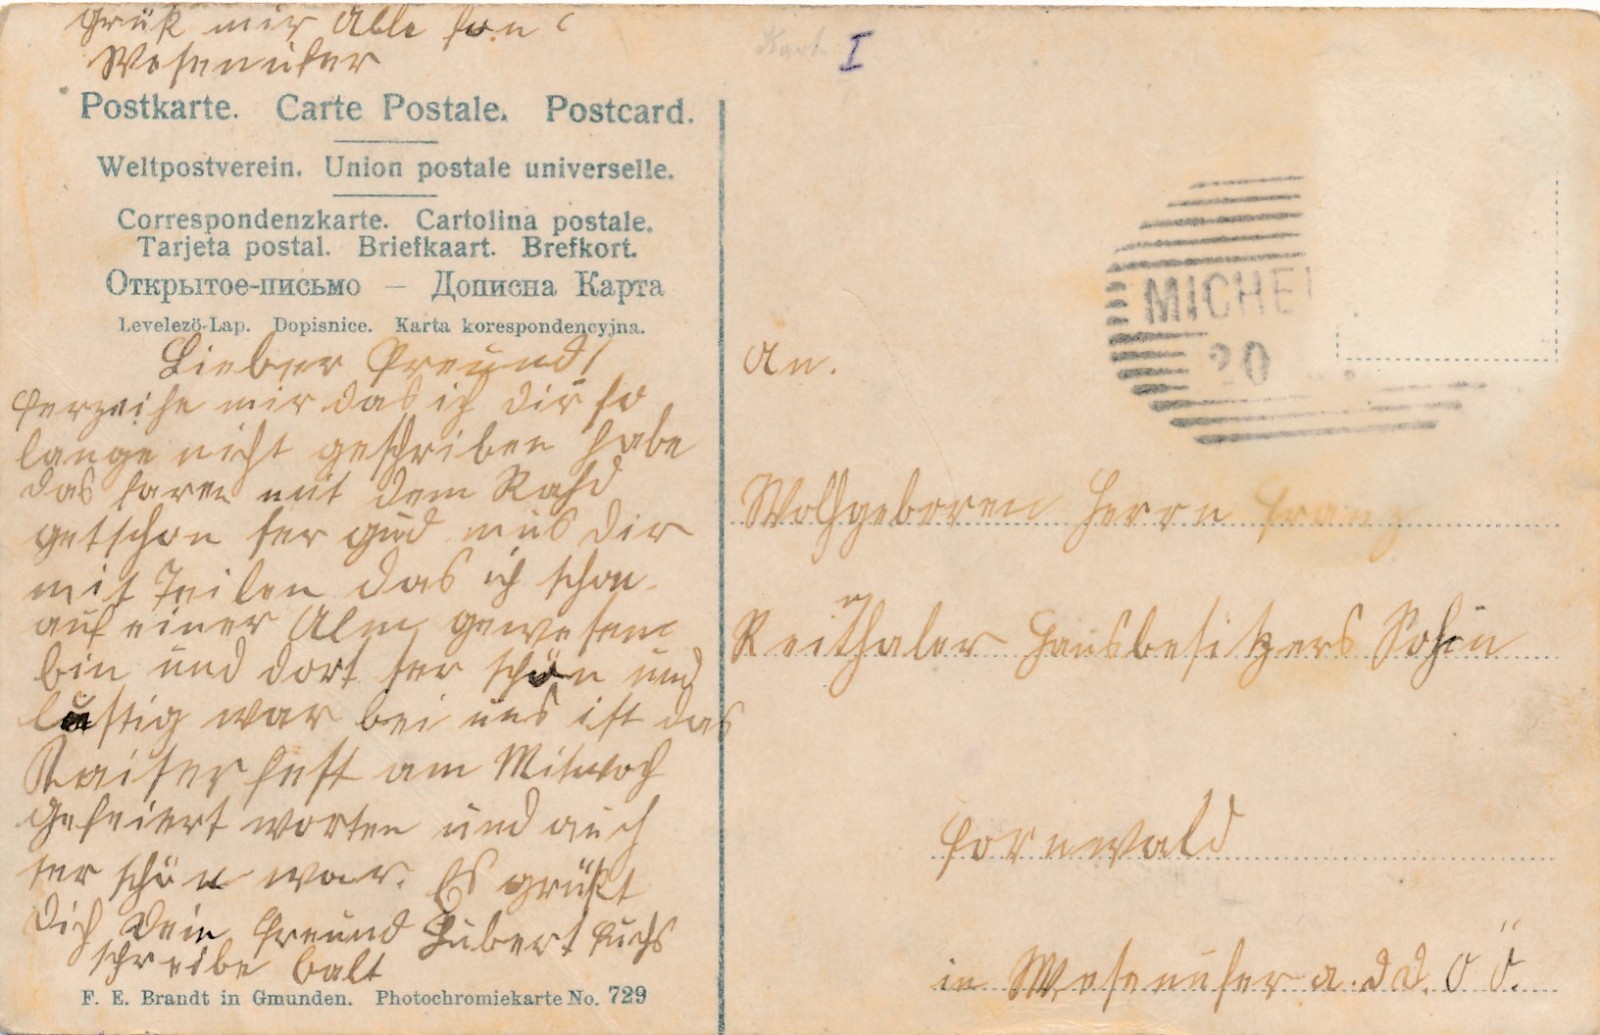 Grüß mir Alle fon
Wesenufer
Postkarte. Carte Postale. Postcard.
Weltpostverein. Union postale universelle.
Correspondenzkarte. Cartolina postale.
Tarjeta postal. Briefkaart. Brefkort.
Открытое-письмо — Дописна Карта
Levelező-Lap. Dopisnice. Karta korespondencyjna.
Lieber Freund!
ferzeihe mir das ich dir so
lange nicht geschriben habe
das faren mit dem Rahd
getschon ser gud mus dir
mit Teilen das ich schon
auf einer Alm gewesen
bin und dort ser schön und
lustig war bei uns ist das
Kaiserfest am Mitwoch
Gefeiert worten und auch
ser schön war. Es grüßt
Dich Dein Freund Hubert Fuchs
schreibe balt
F. E. Brandt in Gmunden. Photochromiekarte No. 729
I
MICHEL
20
An.
Wolhgeboren Herrn Franz
Reithaler Hausbesitzers Sohn
Fornwald
in Wesenufer a. d D. O Ö.